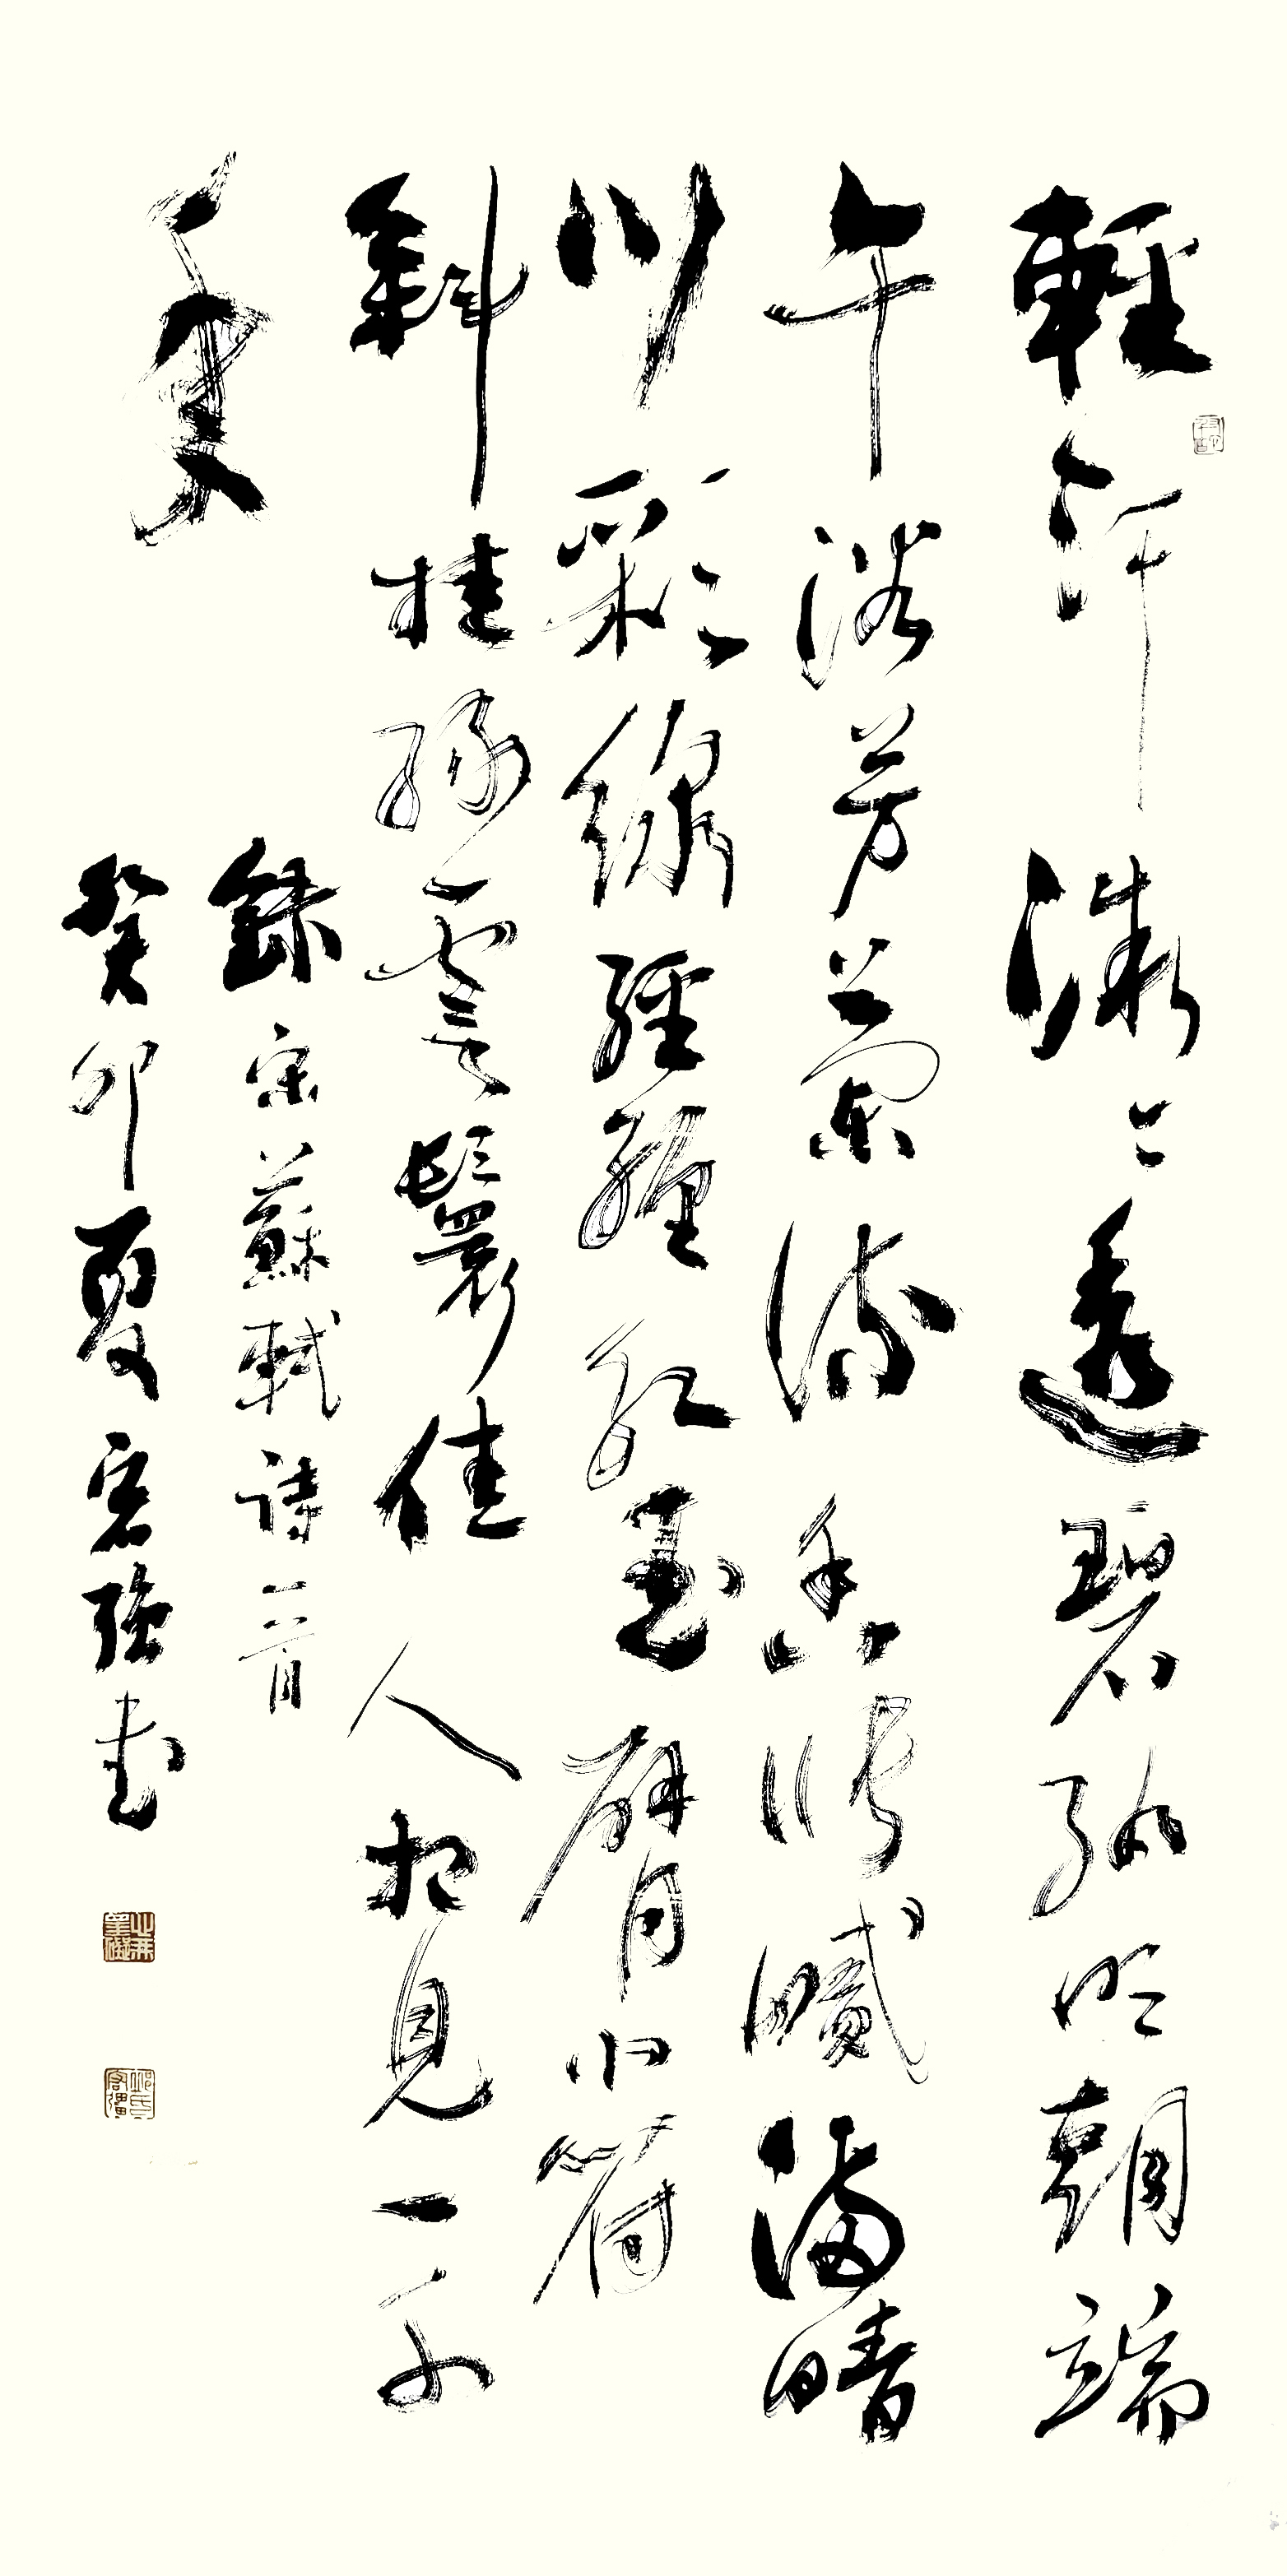 輕汗溦〻透碧紈明朝端
午浴芳蘭流香漲膩滿晴
川彩線經纏紅玉臂小符
斜挂綠雲鬟佳人相見一千
年
錄宋蘇軾詩一首
癸卯夏強書